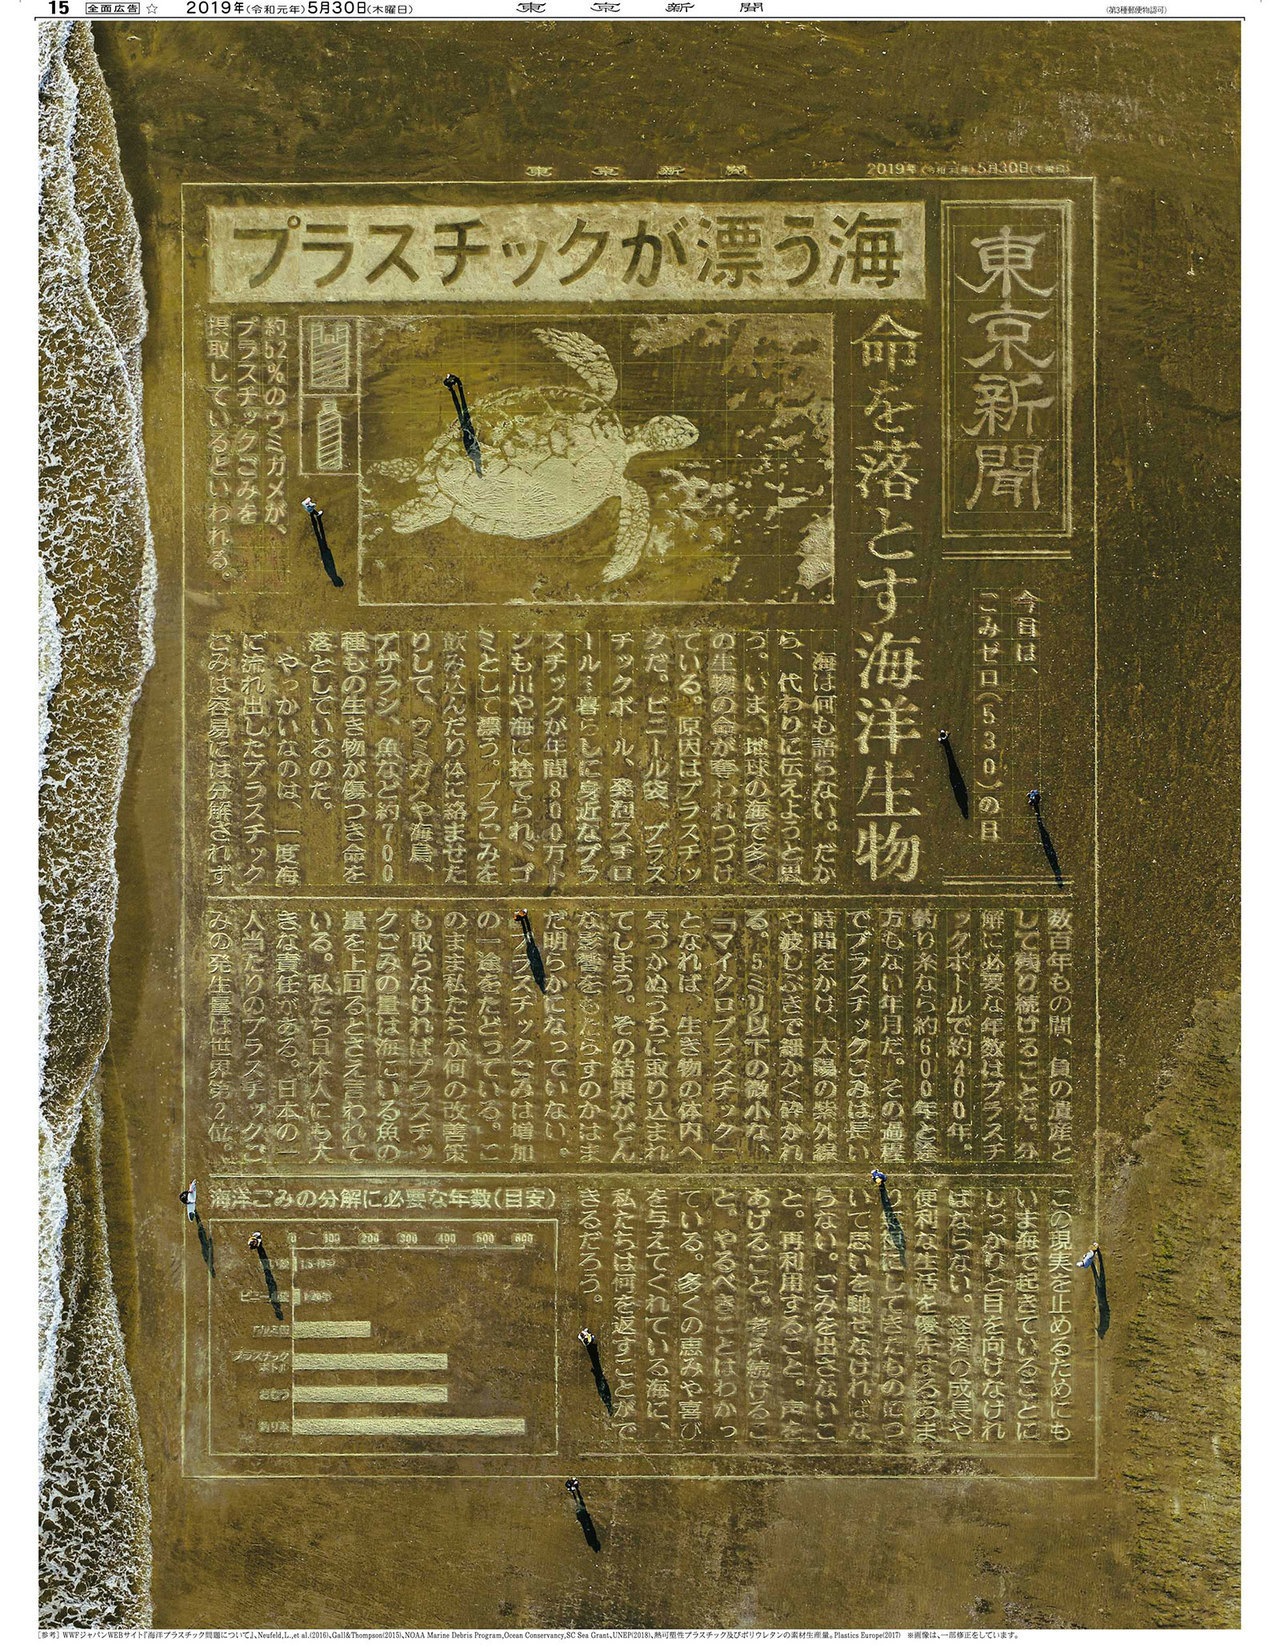 15 全面広告 ☆ 2019年(令和元年)5月30日(木曜日)
東京新聞
(第3種郵便物認可)
東京新聞
2019年(令和元年)5月30日(木曜日)
プラスチックが漂う海
東京新聞
今日は、
ごみゼロ(530)の日
命を落とす海洋生物
約52%のウミガメが、
プラスチックごみを
摂取しているといわれる。
海は何も語らない。だか
ら、代わりに伝えようと思
う。いま、地球の海で多く
の生物の命が奪われつづけ
ている。原因はプラスチッ
クだ。ビニール袋、プラス
チックボトル、発泡スチロ
ール…暮らしに身近なプラ
スチックが年間800万ト
ンも川や海に捨てられ、ゴ
ミとして漂う。プラごみを
飲み込んだり体に絡ませた
りして、ウミガメや海鳥、
アザラシ、魚など約700
種もの生き物が傷つき命を
落としているのだ。
やっかいなのは、一度海
に流れ出したプラスチック
ごみは容易には分解されず
数百年もの間、負の遺産と
して残り続けることだ。分
解に必要な年数はプラスチ
ックボトルで約400年。
釣り糸なら約600年と途
方もない年月だ。その過程
でプラスチックごみは長い
時間をかけ、太陽の紫外線
や波しぶきで細かく砕かれ
る。5ミリ以下の微小な
「マイクロプラスチック」
となれば、生き物の体内へ
気づかぬうちに取り込まれ
てしまう。その結果がどん
な影響をもたらすのかはま
だ明らかになっていない。
プラスチックごみは増加
の一途をたどっている。こ
のまま私たちが何の改善策
も取らなければプラスチッ
クごみの量は海にいる魚の
量を上回るとさえ言われて
いる。私たち日本人にも大
きな責任がある。日本の一
人当たりのプラスチックご
みの発生量は世界第2位。
この現実を止めるためにも
いま海で起きていることに
しっかりと目を向けなけれ
ばならない。経済の成長や
便利な生活を優先するあま
り犠牲にしてきたものにつ
いて思いを馳せなければな
らない。ごみを出さないこ
と。再利用すること。声を
あげること。考え続けるこ
と。やるべきことはわかっ
ている。多くの恵みや喜び
を与えてくれている海に、
私たちは何を返すことがで
きるだろう。
海洋ごみの分解に必要な年数(目安)
0 100 200 300 400 500 600
アルミ缶
プラスチックボトル
おむつ
釣り糸
[参考] WWFジャパンWEBサイト『海洋プラスチック問題について』、Neufeld,L.,et al.(2016)、Gall&Thompson(2015)、NOAA Marine Debris Program,Ocean Conservancy,SC Sea Grant,UNEP(2018)、熱可塑性プラスチック及びポリウレタンの素材生産量。Plastics Europe(2017) ※画像は、一部修正をしています。